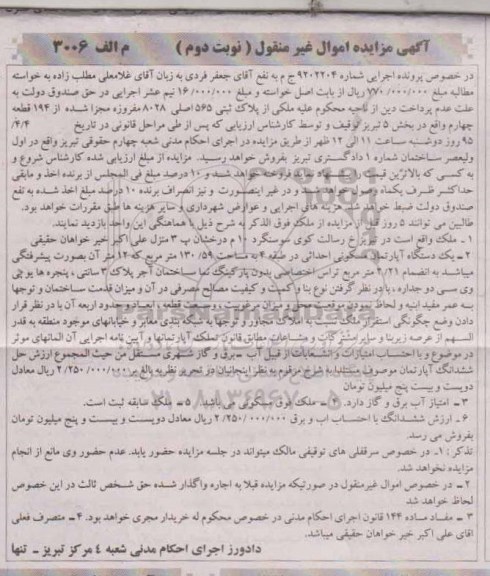 آگهی مزایده اموال غیر منقول ( نوبت دوم ) م الف ۳۰۰۶
در خصوص پرونده اجرایی شماره ۹۲۰۲۲۰۴ ج م به نفع آقای جعفر فردی به زیان آقای غلامعلی مطلب زاده به خواسته
مطالبه مبلغ ۷۷۰/۰۰۰/۰۰۰ ریال از بابت اصل خواسته و مبلغ ۱۶/۰۰۰/۰۰۰ نیم عشر اجرایی در حق صندوق دولت به
علت عدم پرداخت دین از ناحیه محکوم علیه ملکی از پلاک ثبتی ۵۶۵ اصلی ۸۰۲۸ مفروزه مجزا شده از ۱۹۴ قطعه
چهارم واقع در بخش ۵ تبریز توقیف و توسط کارشناس ارزیابی که پس از طی مراحل قانونی در تاریخ ۴/۴/
۹۵ روز دوشنبه ساعت ۱۱ الی ۱۲ ظهر از طریق مزایده در اجرای احکام مدنی شعبه چهارم حقوقی تبریز واقع در اول
ولیعصر ساختمان شماره ۱ دادگستری تبریز بفروش خواهد رسید. مزایده از مبلغ ارزیابی شده کارشناس شروع و
به کسی که بالاترین قیمت را پیشنهاد نماید فروخته خواهد شد و ۱۰ درصد مبلغ فی المجلس از برنده اخذ و مابقی
حداکثر ظرف یکماه وصول خواهد شد و در غیر اینصورت و نیز انصراف برنده ۱۰ درصد مبلغ اخذ شده به نفع
صندوق دولت ضبط خواهد شد. هزینه های اجرایی و عوارض شهرداری و سایر هزینه ها طبق مقررات خواهد بود.
طالبین می توانند ۵ روز قبل از مزایده از ملک فوق الذکر به شرح ذیل با هماهنگی این واحد بازدید نمایند.
۱ ـ ملک واقع است در تبریز رسالت کوی سوسنگرد ۱۰ م درخشان پ ۳ منزل علی اکبر خیر خواهان حقیقی
۲ ـ یک دستگاه آپارتمان مسکونی احداثی در طبقه ۴ به مساحت ۱۳۰/۵۹ متر مربع که ۱۲ متر آن بصورت پیشرفتگی
میباشد به انضمام ۲/۲۱ متر مربع تراس اختصاصی بدون پارکینگ نما ساختمان آجر پلاک ۳ سانتی ، پنجره ها یو چی
وی سی دو جداره ، با در نظر گرفتن نوع بنا و کمیت و کیفیت مصالح مصرفی در آن و میزان قدمت ساختمان و توجها
به عمر مفید ابنیه و لحاظ نمودن موقعیت محل و میزان مرغوبیت و مساحت قطعه و ابعاد و حدود اربعه آن با در نظر قرار
دادن وضع چگونگی استقرار ملک نسبت به املاک مجاور و توجها به شبکه بندی معابر و خیابانهای موجود منطقه به قدر
السهم از عرصه زیربنا و سایر مشترکات و مشاعات مطابق قانون تملک آپارتمانها و آیین نامه اجرایی آن المانهای موثر
در موضوع و با احتساب امتیازات و انشعابات از قبیل آب ـ برق و گاز شهری مستقل من حیث المجموع ارزش حل
ششدانگ آپارتمان موصوف مستندا به شرح مرقوم به نظر اینجانبان در تحریر نظریه بالغ بر ۲/۲۵۰/۰۰۰/۰۰۰ ریال معادل
دویست و بیست پنج میلیون تومان
۳ ـ امتیاز آب برق و گاز دارد. ۴ ـ ملک فوق مسکونی می باشد. ۵ ـ ملک سابقه ثبت است.
۶ ـ ارزش ششدانگ با احتساب اب و برق ۲/۲۵۰/۰۰۰/۰۰۰ ریال معادل دویست و بیست و پنج میلیون تومان
بفروش می رسد.
تذکر : ۱ـ در خصوص سرقفلی های توقیفی مالک میتواند در جلسه مزایده حضور یابد. عدم حضور وی مانع از انجام
مزایده نخواهد شد.
۲ ـ در خصوص اموال غیرمنقول در صورتیکه مزایده قبلا به اجاره واگذار شده حق شخص ثالث در این خصوص
لحاظ خواهد شد
۳ ـ مفاد ماده ۱۴۴ قانون اجرای احکام مدنی در خصوص محکوم له خریدار مجری خواهد بود. ۴ ـ متصرف فعلی
اقای علی اکبر خیر خواهان حقیقی میباشد.
دادورز اجرای احکام مدنی شعبه ٤ مرکز تبریز ـ تنها